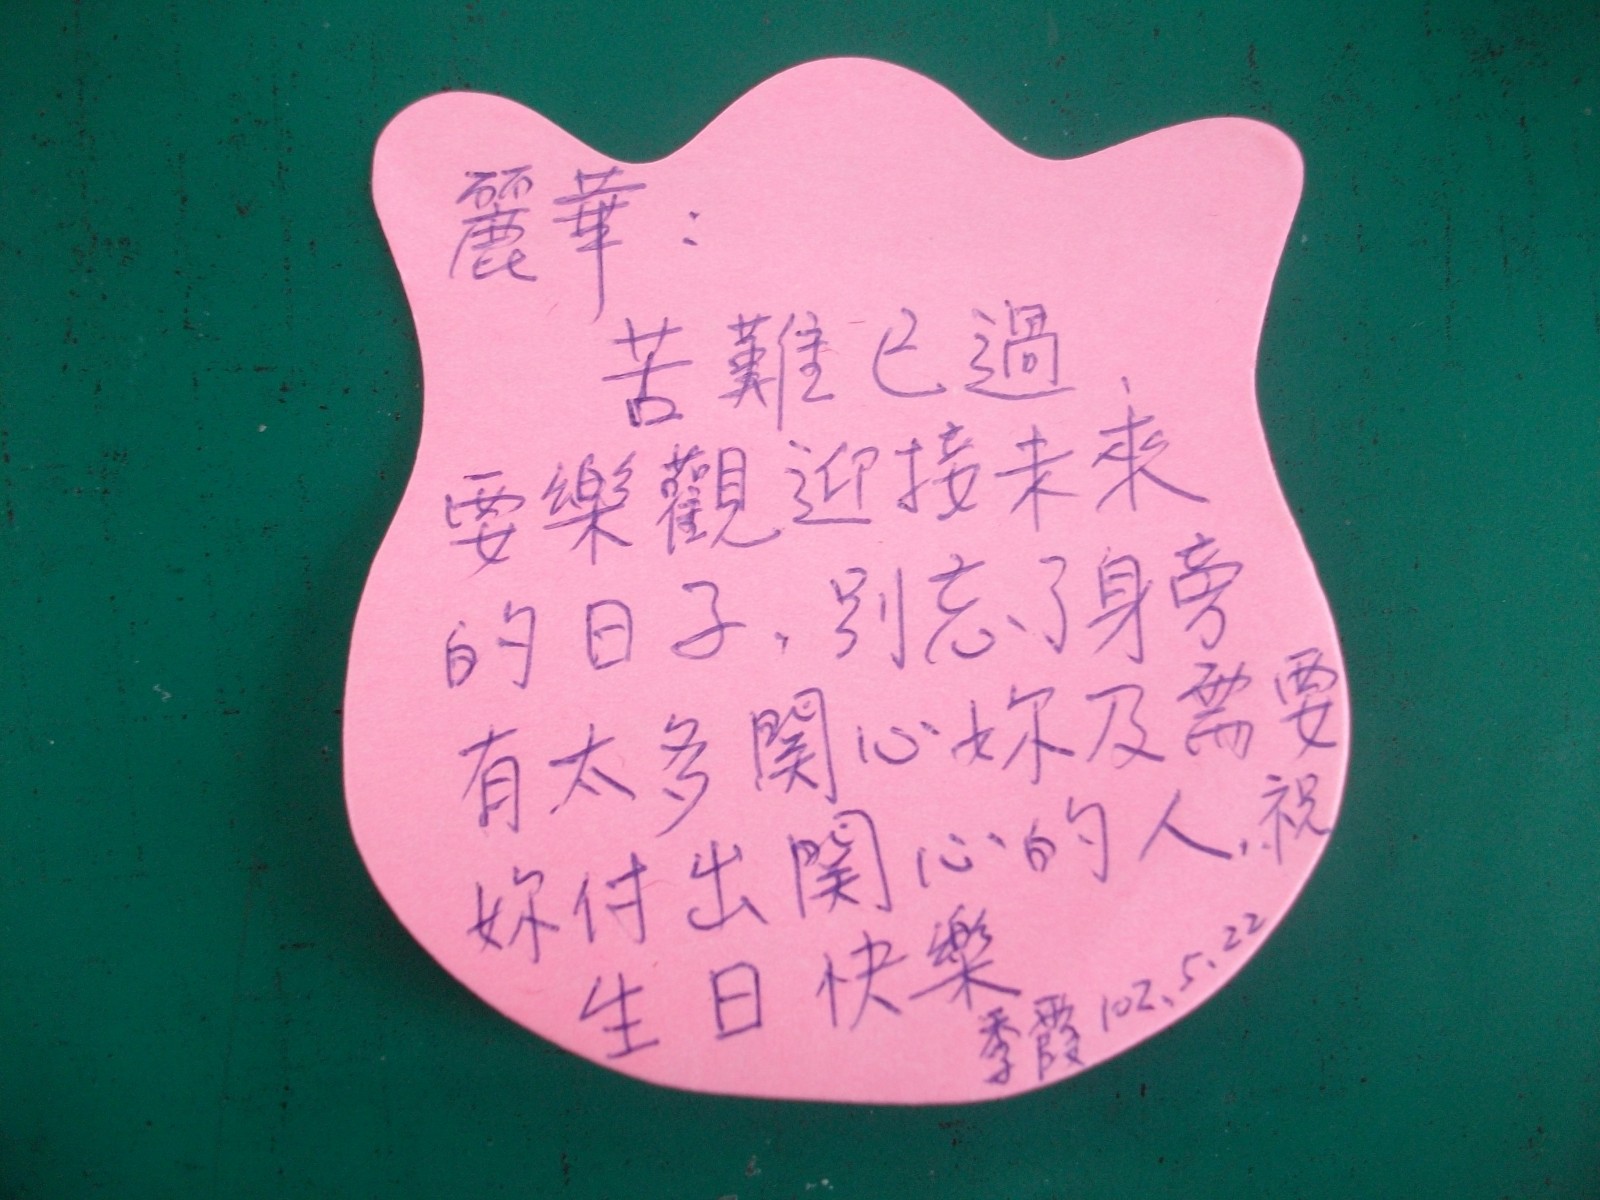 麗華：
苦難已過，
要樂觀迎接未來
的日子，別忘了身旁
有太多関心妳及需要
妳付出関心的人，祝
生日快樂
季霞 102.5.22